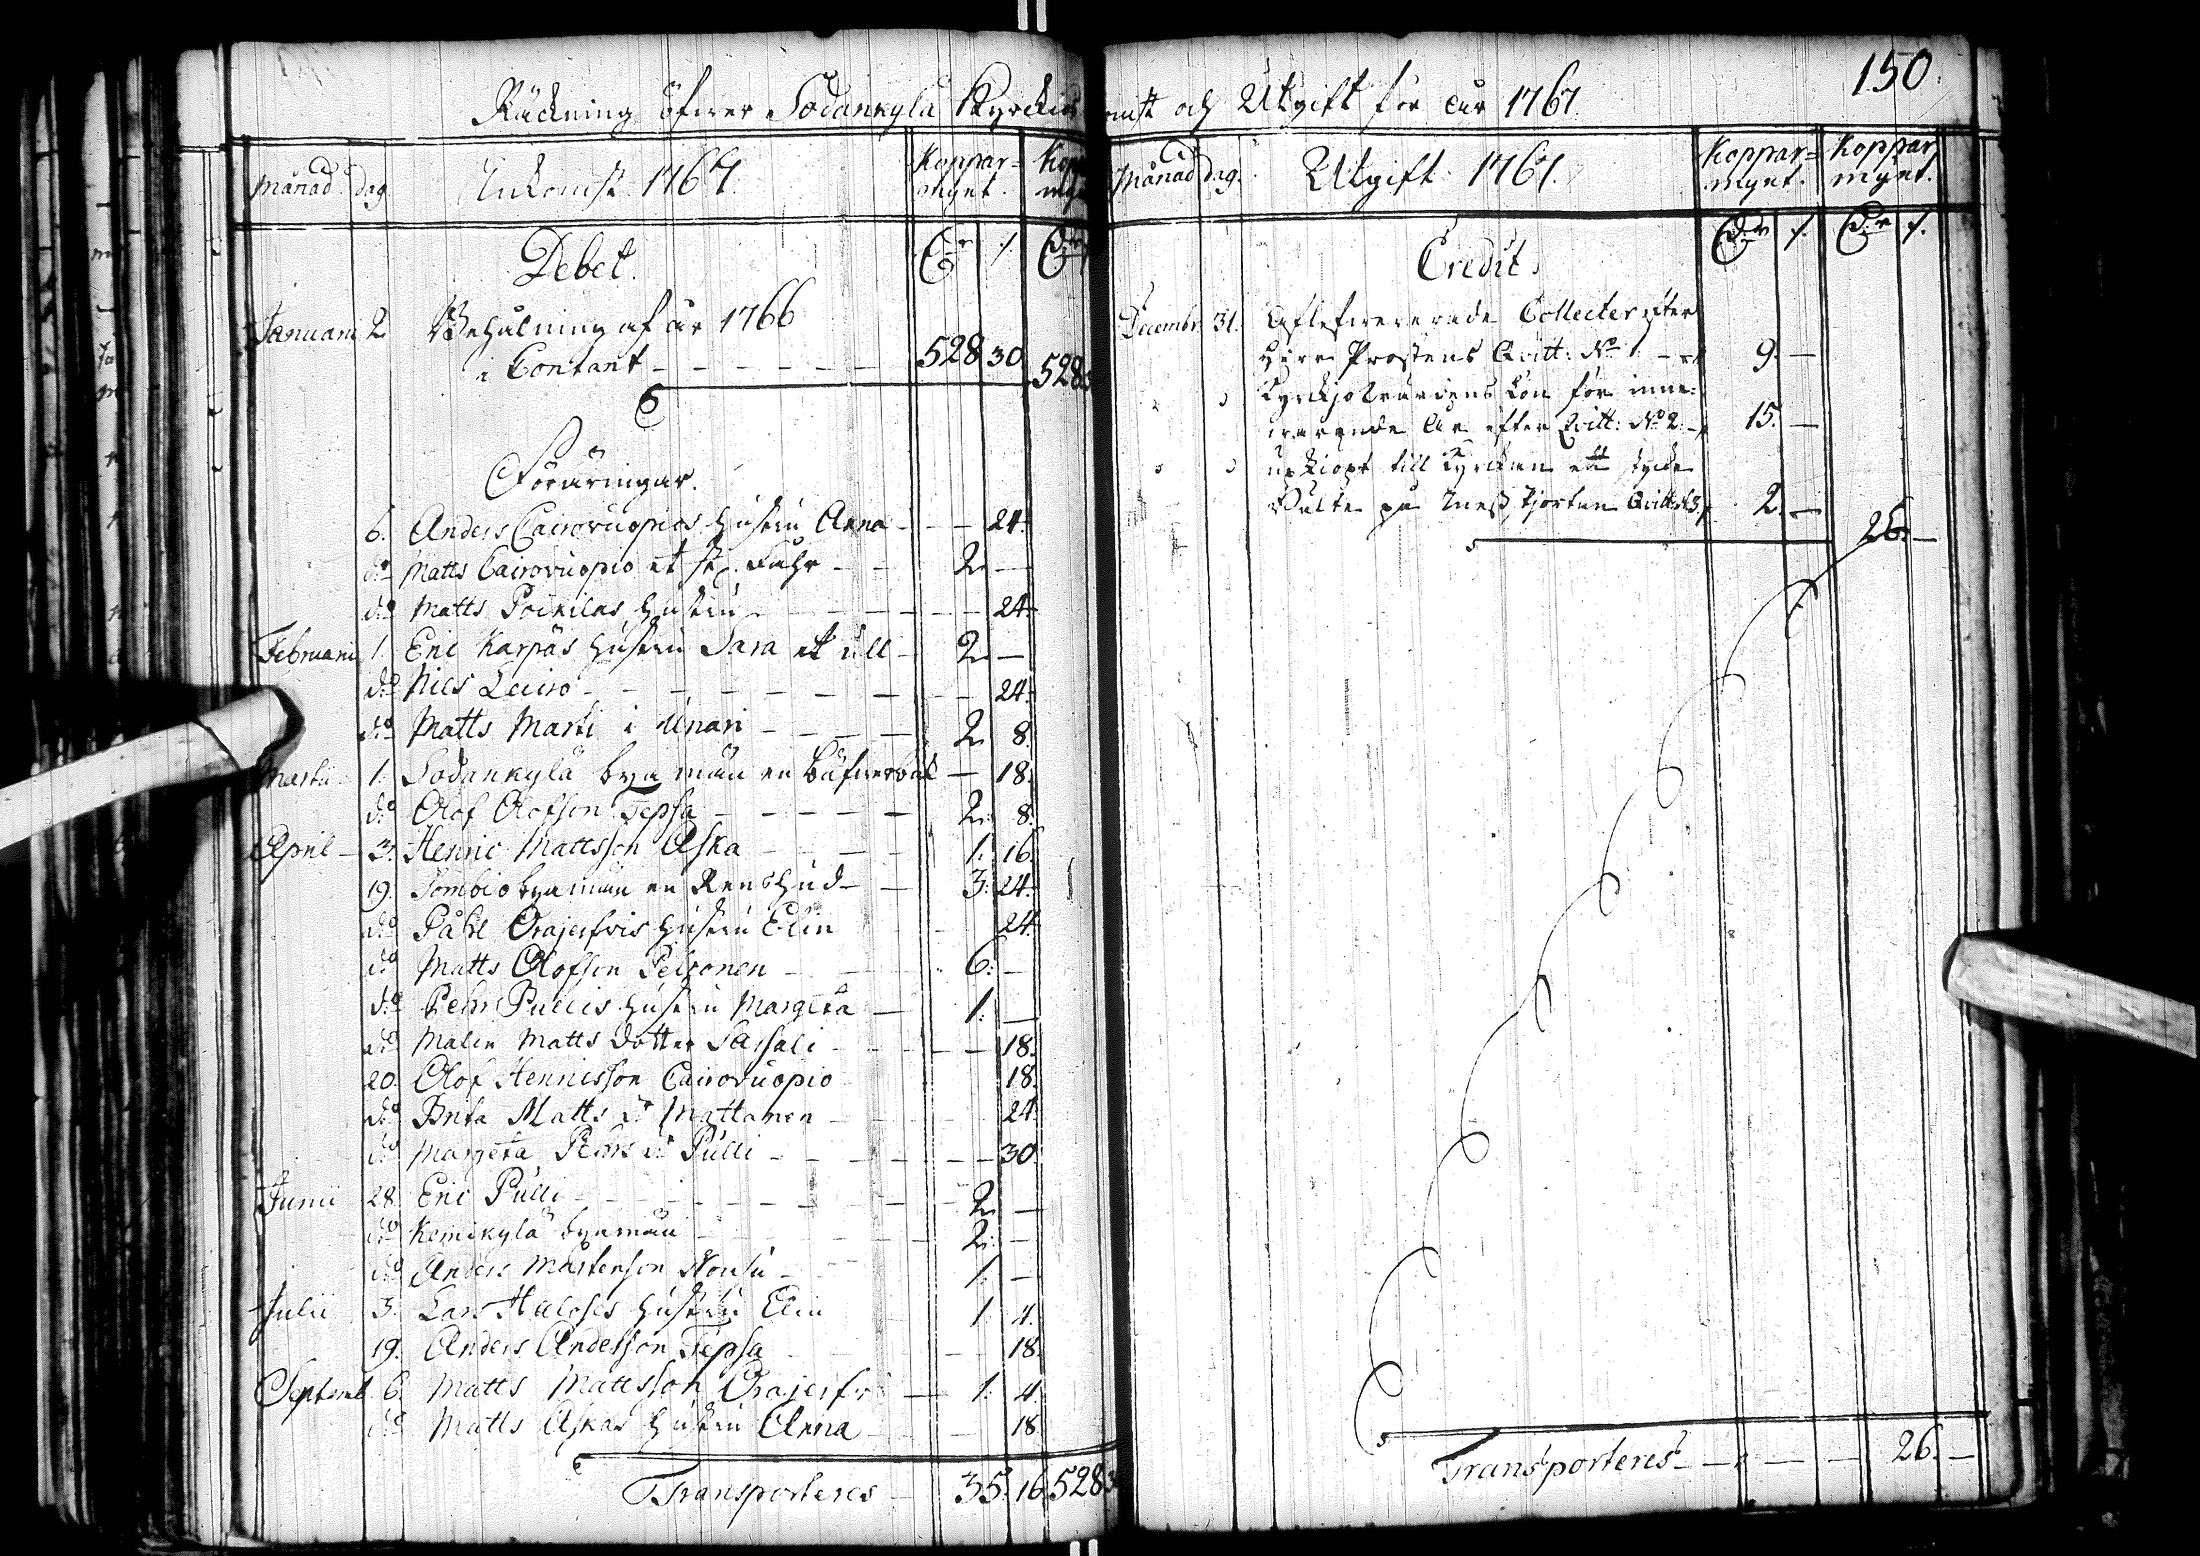 150.
Räckning öfwer Sodankylä Kyrckio
omst och Utgift för åhr 1767.
Månad dag Inkomst 1767. Koppar= mynt. Kopp
Debet.
Januarii 2 Behålning af år 1766
i Contant - - - - - 528 30 528
Föräringar.
6. Anders Cairovuopios hustru Anna - - - 24.
do Matts Cairovuopio et st. - - 2. —
do Matts Poikilas hustru - - - - 24.
Februarii 1. Eric Karpäs hustru Sara et ull - 2. —
do Nils Leiiro - - - - - - 24.
do Matts Marti i Unari - - - - 2. 8.
Martii 1. Sodankylä bya män en — 18.
do Olof Olofson Tepsa - - - - - 2. 8.
April - 3. Henric Mattsson Aska - - - - 1. 16.
19. Sombio byamän en Renshud - - 3. 24.
do Påhl Orajerfvis hustru Elin 24.
do Matts Olofson Pelkonen - - - 6. —
do Pehr Pullis hustru Margeta — 1. —
do Malin Matts dotter Sassali - - - - 18.
20. Olof Henricsson Cairovuopio 18.
do Brita Matts dr Mattanen - - - 24.
do Margeta Pehrs dr Pulli - - - - - 30.
Junii 28. Eric Pulli - - - - - - 2. —
do Kemikylä byamän - - - - - 2. —
do Anders Mårtenson Kousu - - - 1. —
Julii 3. Lars Halosis hustru Elin 1. 4.
19. Anders Andersson Tepsa - - 18.
Septemb. 6. Matts Mattsson Orajerfvi — 1. 4.
do Matts Askas hustru Anna - - 18.
Transporteres - 35. 16. 528
Månad dag. Utgift 1767. Koppar= mynt. Koppar mynt.
Credit.
Decembr. 31. Aflefwererade Collecter efter
Herr Prostens Qvitt: No 1. - 9. —
Kyrckjo Wärdens Lön för inne=
warande År efter Qvitt: No 2. - 15. —
upkiöpt till Kyrckan ett stycke
på Mess Skjortan Qvitt. N 3 2. — 26. —
Transporteres - - - - 26. —